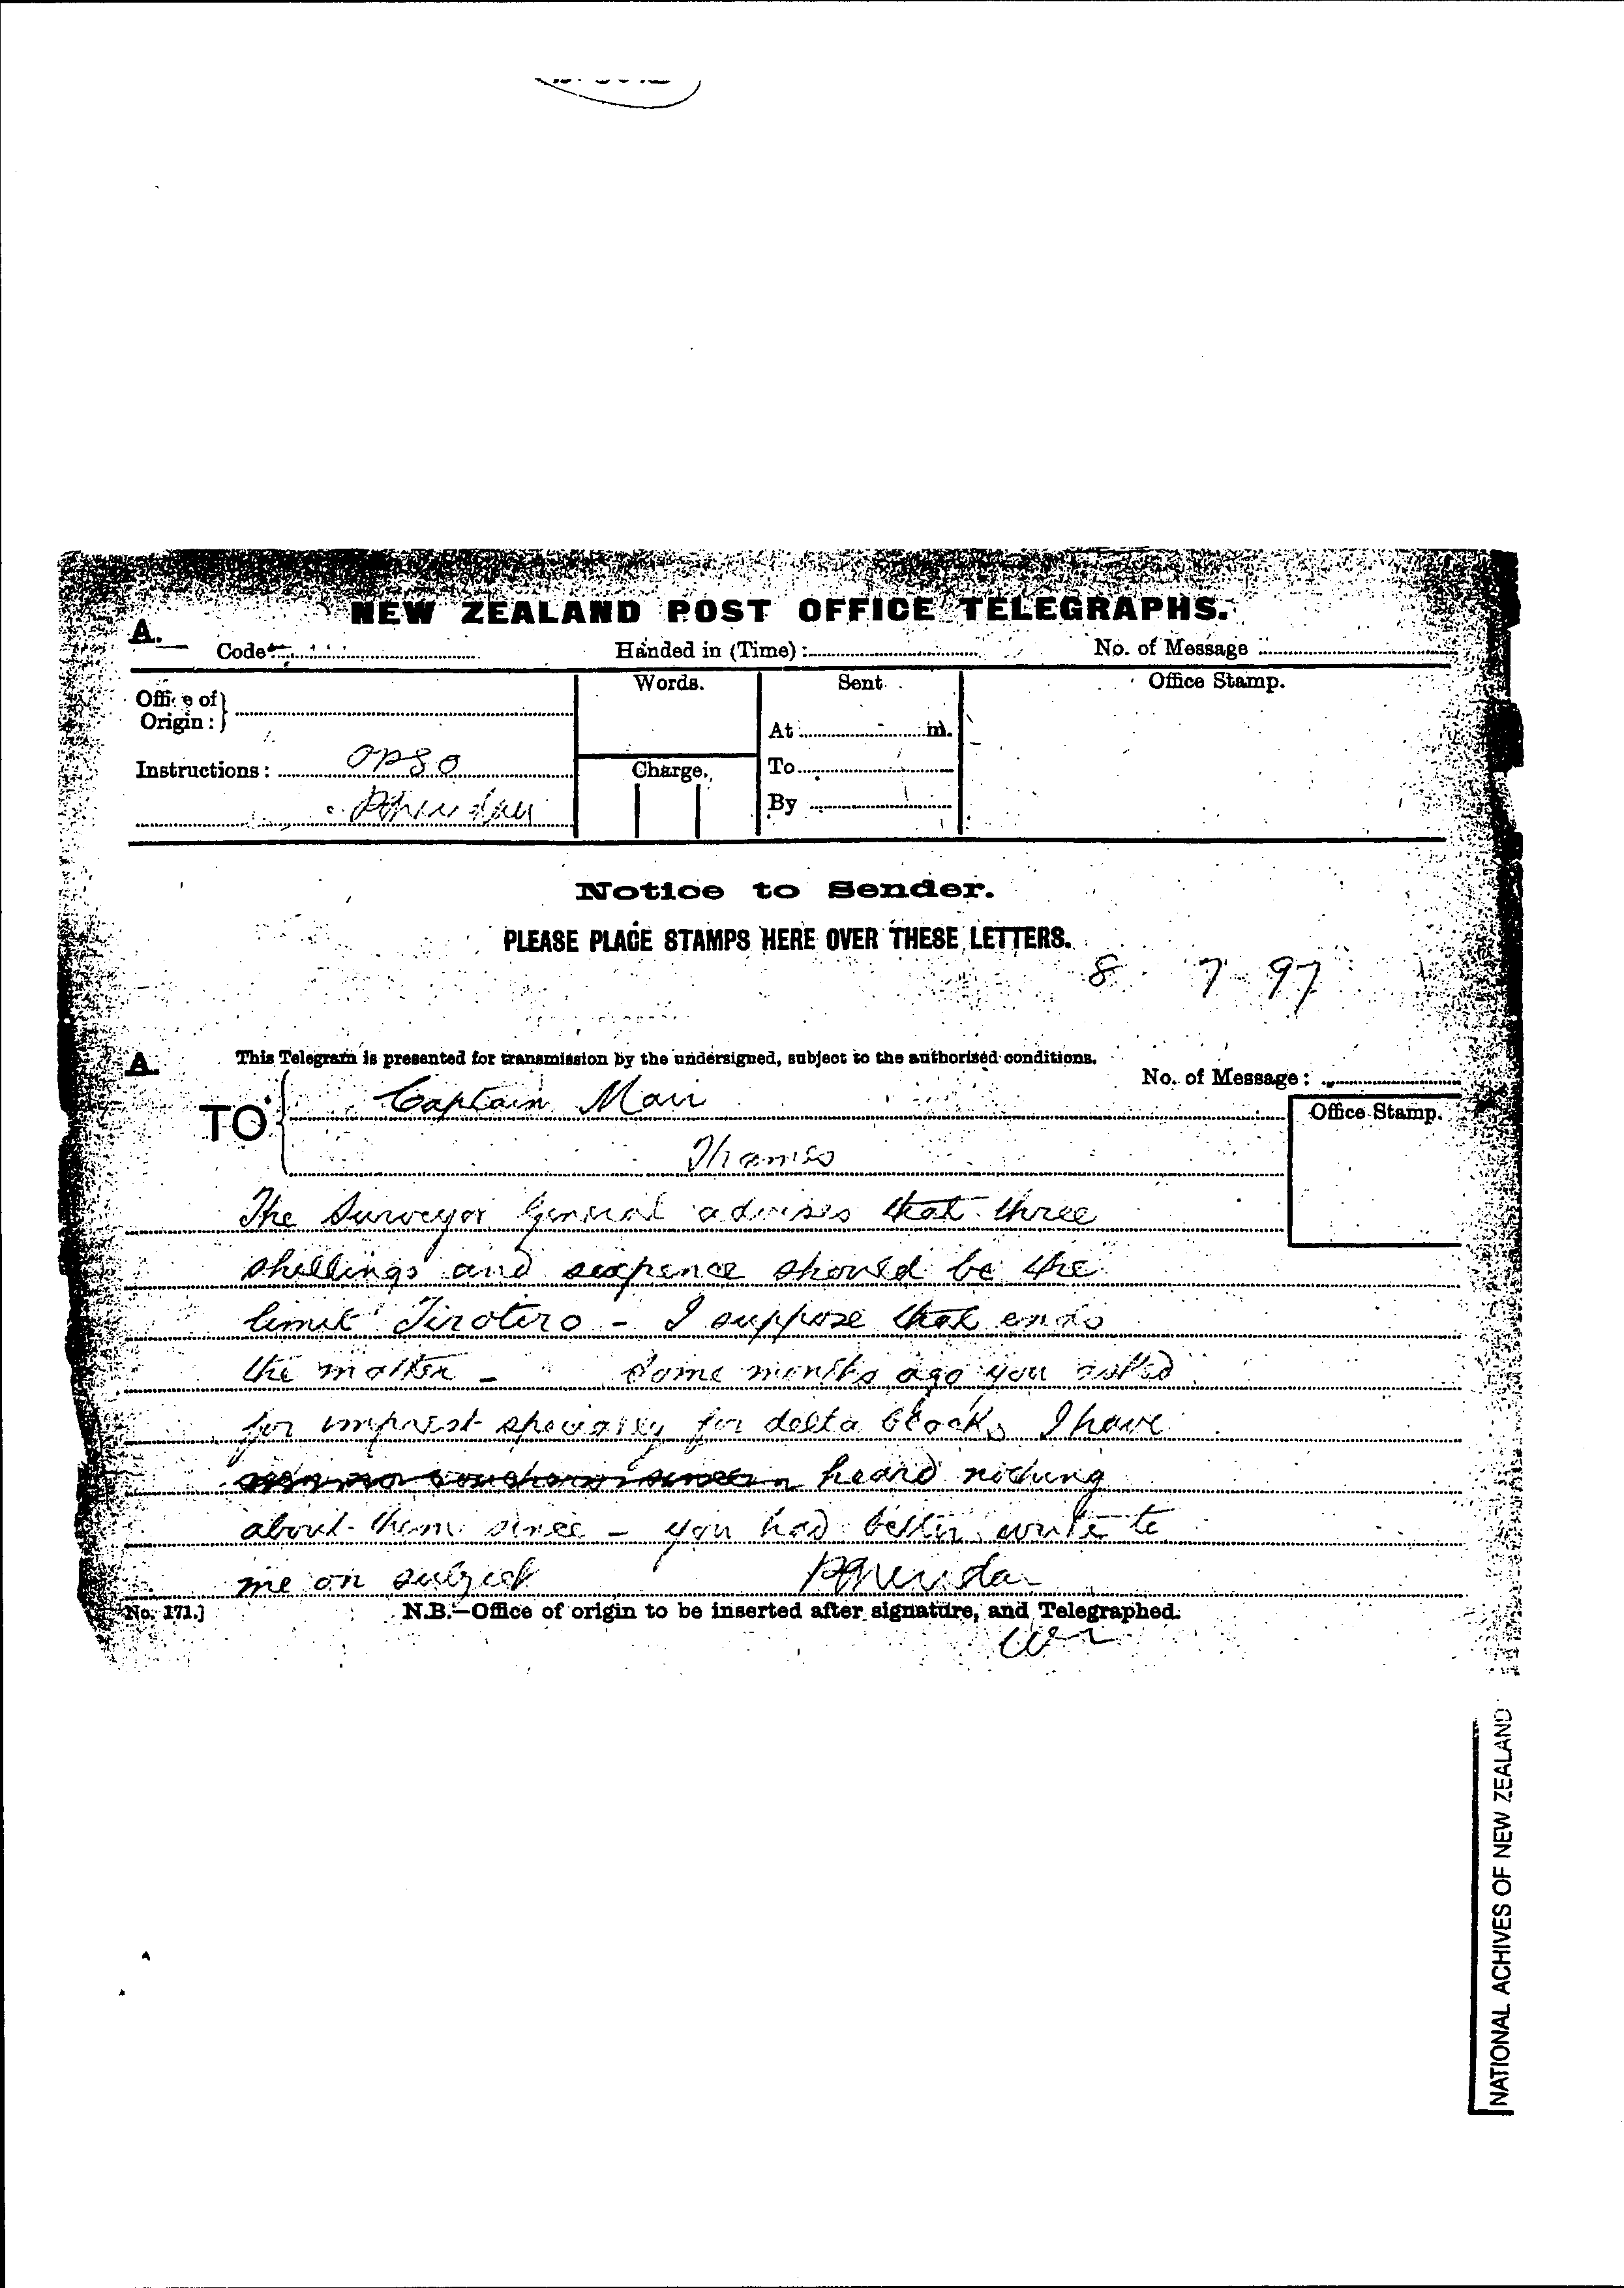 NEW ZEALAND POST OFFICE TELEGRAPHS.
A.
Code
Handed in (Time) :
No. of Message
Office of
Origin :
Words.
Sent
Office Stamp.
At m.
Instructions :
Charge.
To
By
Notice to Sender.
PLEASE PLACE STAMPS HERE OVER THESE LETTERS.
8 7 97
A. This Telegram is presented for transmission by the undersigned, subject to the authorised conditions.
No. of Message :
TO Captain Mair
Office Stamp.
Thames
The Surveyor General advises that three
shillings and sixpence should be the
limit Tirotiro - I suppose that ends
the matter - Some months ago you asked
for imprest specially for delta blocks I have
heard nothing
about them since - you had better write to
me on subject
No. 171.]
N.B.—Office of origin to be inserted after signature, and Telegraphed.
NATIONAL ACHIVES OF NEW ZEALAND